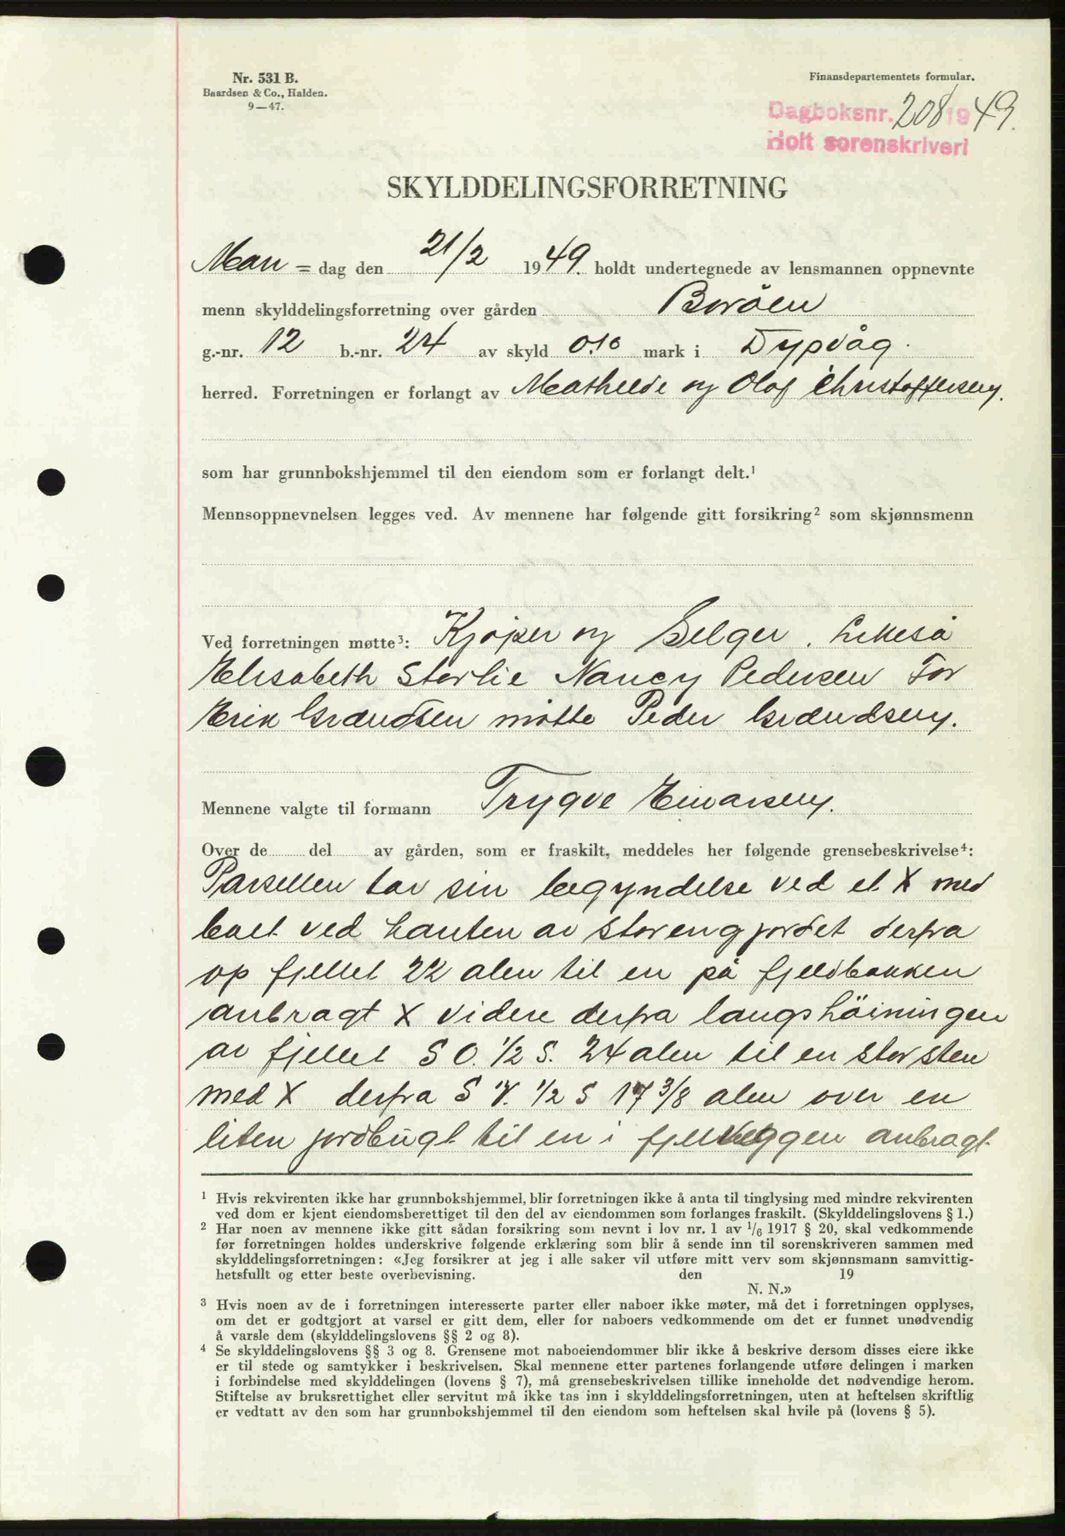 Nr. 531 B.
Baardsen & Co., Halden.
9—47.
Finansdepartementets formular.
Dagboksnr. 208 1949.
Holt sorenskriveri
SKYLDDELINGSFORRETNING
Man = dag den 21/2 1949. holdt undertegnede av lensmannen oppnevnte
menn skylddelingsforretning over gården Borøen
g.-nr. 12 b.-nr. 24 av skyld 0.10 mark i Dypvåg.
herred. Forretningen er forlangt av Mathilde og Olaf Christoffersen.
som har grunnbokshjemmel til den eiendom som er forlangt delt.¹
Mennsoppnevnelsen legges ved. Av mennene har følgende gitt forsikring² som skjønnsmenn
Ved forretningen møtte³: Kjøper og Selger. Likeså
Elisabeth Storlie Nancy Pedersen For
Erik Grændsen møtte Peder Grændsen.
Mennene valgte til formann Trygve Einarsen.
Over de del av gården, som er fraskilt, meddeles her følgende grensebeskrivelse⁴:
Parsellen tar sin begyndelse ved et X med
bolt ved kanten av storengjordet derfra
op fjellet 22 alen til en på fjeldbakken
anbragt X videre derfra langs höiningen
av fjellet S O. 1/2 S. 24 alen til en stor sten
med X derfra S V. 1/2 S 17 3/8 alen over en
liten jordbugt til en i fjelveggen anbragt
¹ Hvis rekvirenten ikke har grunnbokshjemmel, blir forretningen ikke å anta til tinglysing med mindre rekvirenten
ved dom er kjent eiendomsberettiget til den del av eiendommen som forlanges fraskilt. (Skylddelingslovens § 1.)
² Har noen av mennene ikke gitt sådan forsikring som nevnt i lov nr. 1 av 1/6 1917 § 20, skal vedkommende
før forretningen holdes underskrive følgende erklæring som blir å sende inn til sorenskriveren sammen med
skylddelingsforretningen: «Jeg forsikrer at jeg i alle saker vil utføre mitt verv som skjønnsmann samvittig-
hetsfullt og etter beste overbevisning. den 19
N. N.»
³ Hvis noen av de i forretningen interesserte parter eller naboer ikke møter, må det i forretningen opplyses,
om det er godtgjort at varsel er gitt dem, eller for naboers vedkommende om det er funnet unødvendig
å varsle dem (skylddelingslovens §§ 2 og 8).
⁴ Se skylddelingslovens §§ 3 og 8. Grensene mot naboeiendommer blir ikke å beskrive dersom disses eiere ikke
er til stede og samtykker i beskrivelsen. Skal mennene etter partenes forlangende utføre delingen i marken
i forbindelse med skylddelingen (lovens § 7), må grensebeskrivelsen tillike inneholde det nødvendige herom.
Stiftelse av bruksrettighet eller servitut må ikke tas inn i skylddelingsforretningen, uten at heftelsen skriftlig
er vedtatt av den som har grunnbokshjemmel til den eiendom som heftelsen skal hvile på (lovens § 5).